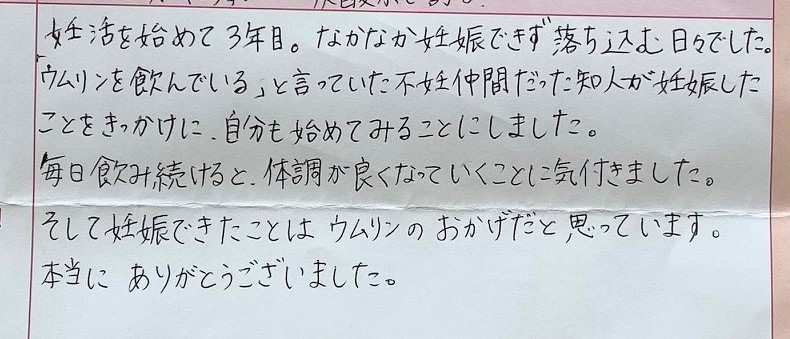 妊活を始めて3年目。なかなか妊娠できず落ち込む日々でした。
「ウムリンを飲んでいる」と言っていた不妊仲間だった知人が妊娠した
ことをきっかけに、自分も始めてみることにしました。
毎日飲み続けると、体調が良くなっていくことに気付きました。
そして妊娠できたことはウムリンのおかげだと思っています。
本当にありがとうございました。